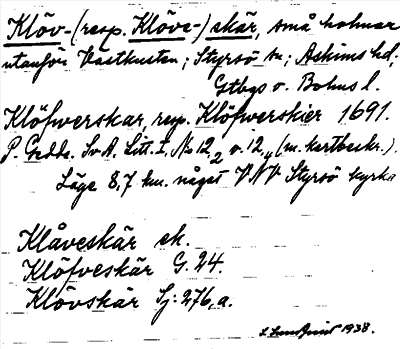 Klöv-(resp. Klöve-)skär, små holmar
utanför Västkusten; Styrsö sn; Askims hd;
Gtbgs o. Bohus l.
Klöfwerskar, resp. Klöfwerskier 1691.
P. Gedda. Sv A. Litt. I, No 12 2 o. 12 4 (m. kartbeskr.).
Läge 8,7 km. något VNV Styrsö kyrka
Klåveskär ek.
Klöfveskär G. 24.
Klövskär Sj: 276, a.
1938.